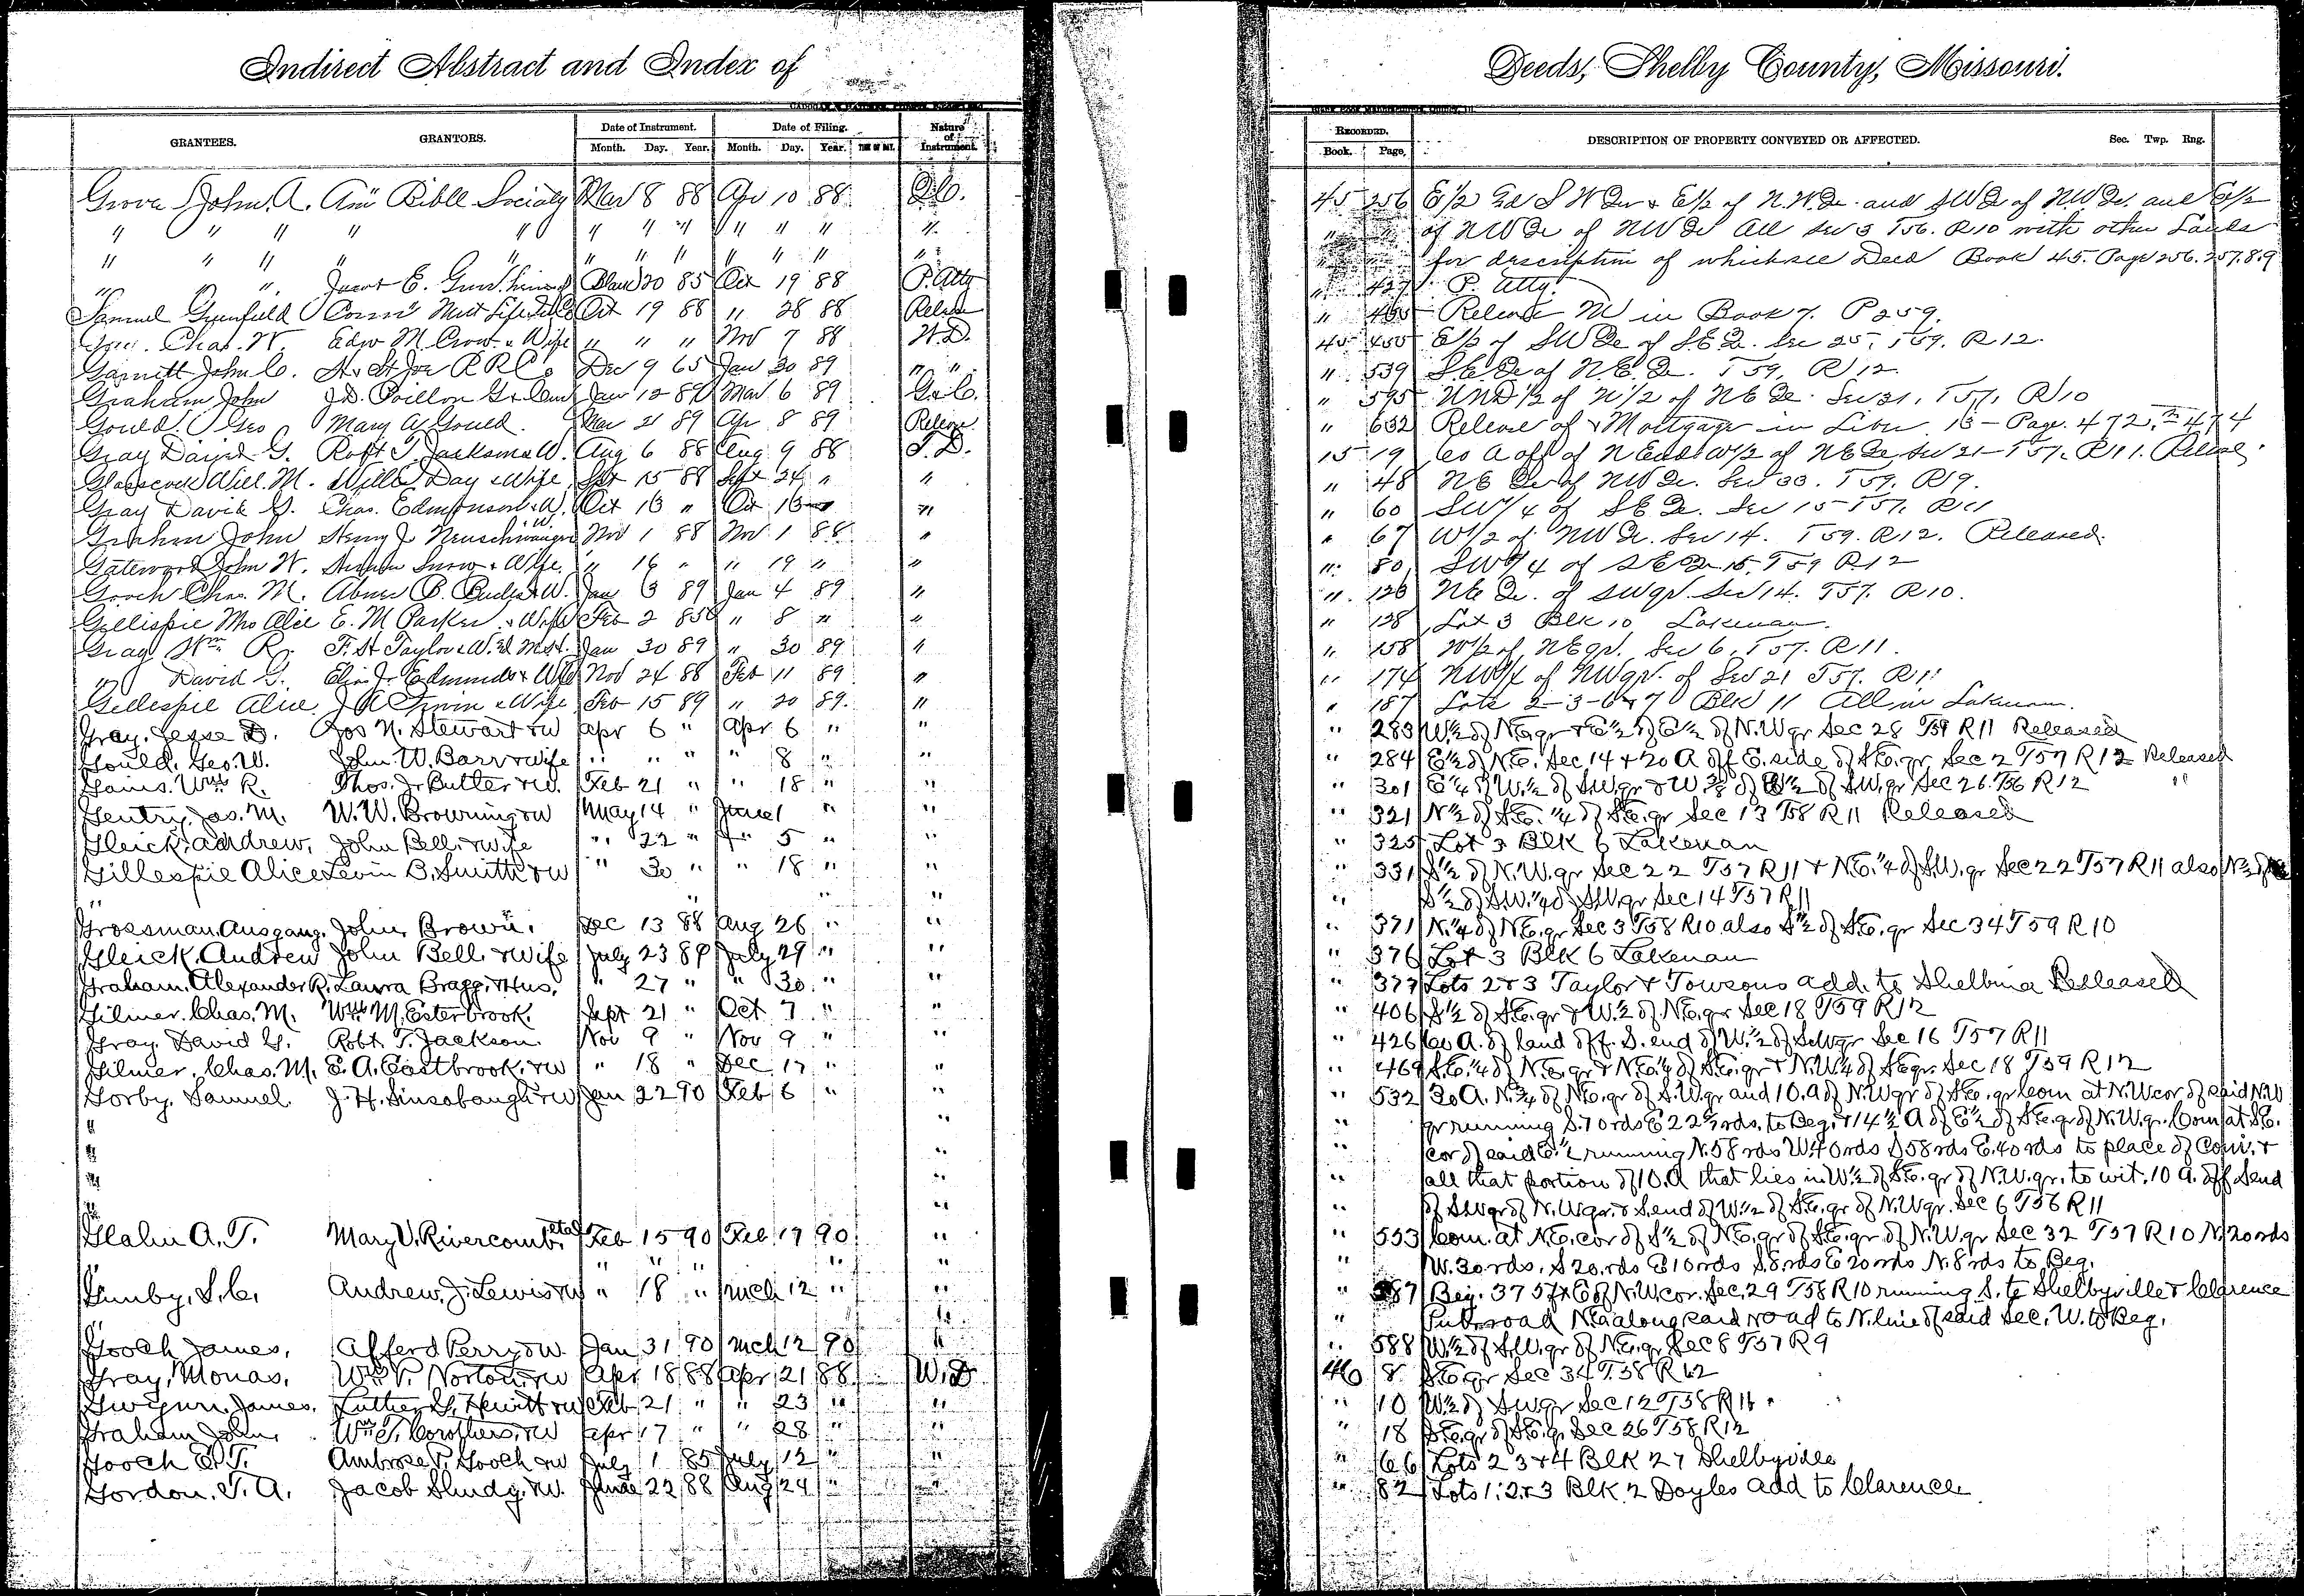 Indirect Abstract and Index of
Deeds, Shelby County, Missouri.
GRANTEES. GRANTORS. Date of Instrument. Date of Filing. Nature of Instrument.
Month. Day. Year. Month. Day. Year.
RECORDED. DESCRIPTION OF PROPERTY CONVEYED OR AFFECTED. Sec. Twp. Rng.
Book. Page.
Grove John. A. Am Bible Society Mar 8 88 Apr 10 88 Q.C. 45 256 E 1/2 S W Qr & E 1/2 of N.W Qr. and SW Qr of N.W Qr. and E 1/2
" " " " " " " " " " " " of NW Qr of NW Qr All Sec 3 T56. R10 with other Lands
" " " " " " " " " " " " for description of which see Deed Book 45. Page 256. 257. 8. 9
" " " E. 20 85 Oct 19 88 P. Atty " 427 P. Atty.
Samuel Greenfield Mut Life Oct 19 88 " 28 88 Release " Release in Book 7. P 259.
Chas. W. Edw M. Crow & Wife " " " Nov 7 88 W.D. 45 455 E 1/2 of SW Qr of S.E Qr. Sec 25, T59. R 12.
Garnett John C. H & St Joe R R Co Dec 9 65 Jan 30 89 " " " 539 S.E Qr of N.E. Qr. T59, R12
Graham John J.D. Poillon Jan 12 89 Mar 6 89 " 595 UND 1/2 of W 1/2 of NE Qr. Sec 31, T57, R10
Gould Geo Mary A Gould. Mar 21 89 Apr 8 89 Release " 632 Release of Mortgage in Liber 13 - Page. 472. 474
Gray David G. Robt T. Jackson & W. Aug 6 88 Aug 9 88 T.D. 15 19 60 A off of N End W 1/2 of NE Qr Sec 21 - T57. R11.
Glasscock Will. M. Will Day & Wife Sept 15 88 Sept 24 " " " 48 NE Qr of NW Qr. Sec 33. T59. R9.
Gray David G. Chas. Edmonson & W. Oct 13 " Oct 13 " " 60 SW 1/4 of SE Qr. Sec 15 T57. R11
Graham John Henry J. Neuschwanger & W. Nov 1 88 Nov 1 88 " " 67 W 1/2 of NW Qr. Sec 14. T59. R12. Released.
Gateword John W. Snow & Wife. " 16 " " 19 " " " 80 SW 1/4 of SE Qr 15, T59 R12
Gooch Chas. M. Abner P. & W. Jan 3 89 Jan 4 89 " " 123 NE Qr. of SW qr. Sec 14. T57. R10.
Gillispie Mrs Alice E. M Parker & Wife Feb 2 85 " 8 " " " 128 Lot 3 Blk 10 Lakenan.
Gray Wm. R. F. H Taylor & W. Jan 30 89 " 30 89 " " 158 W 1/2 of NE qr. Sec 6, T57. R11.
" David G. J. Edmunds & Wife Nov 24 88 Feb 11 89 " " 174 NW 1/4 of NW qr. of Sec 21 T57. R11
Gillespie Alice J A Irwin & Wife Feb 15 89 " 20 89. " " 187 Lots 2-3-6 & 7 Blk 11 All in Lakenan.
Gray, Jesse D. Jos N. Stewart & W Apr 6 " Apr 6 " " " 283 W 1/2 of N.E. gr & E 1/2 of E 1/2 of N.W gr Sec 28 T59 R11 Released
Gould. Geo. W. John W. Barr & wife " " " " 8 " " " 284 E 1/2 of N.E. Sec 14 & 20 A off E. side of S.E. gr. Sec 2 T57 R12 Released
Gains. Wm R. Thos. J. Butler & W. Feb 21 " " 18 " " " 301 E 1/4 of W 1/2 of S.W. gr & W 3/8 of W 1/2 of S.W. gr Sec 26. T56 R12 "
Gentry. Jas. M. W. W. Browning & W May 14 " June 1 " " " 321 N 1/2 of S.E. 1/4 of S.E. gr Sec 13 T58 R11 Released
Gleick, Andrew. John Bell & Wife " 22 " " 5 " " " 325 Lot 3 Blk 6 Lakenan
Gillespie Alice Levin B. Smith & W " 30 " " 18 " " " 331 S 1/2 of N.W. gr Sec 22 T57 R11 & N.E. 1/4 of S.W. gr Sec 22 T57 R11 also N 1/2 of
" " " " " S 1/2 of S.W. 1/4 of S.W. gr Sec 14 T57 R11
Grossman Ausgang. John Brown. Dec 13 88 Aug 26 " " " 371 N. 1/4 of N.E. gr Sec 3 T58 R10 also S 1/2 of S.E. gr Sec 34 T59 R10
Gleick, Andrew John Bell & Wife July 23 89 July 29 " " " 376 Lot 3 Blk 6 Lakenan
Graham. Alexander R. Laura Bragg & Hus. " 27 " " 30 " " " 377 Lots 2 & 3 Taylor & Towsons add. to Shelbina Released
Gilmer. Chas. M. Wm M. Esterbrook. Sept 21 " Oct 7 " " " 406 S 1/2 of S.E. gr & W. 1/2 of N.E. gr Sec 18 T59 R12
Gray. David G. Robt T. Jackson. Nov 9 " Nov 9 " " " 426 60 A. of land off. S. end of W. 1/2 of S.W gr Sec 16 T57 R11
Gilmer, Chas. M. E. A. Eastbrook. & W " 18 " Dec 17 " " " 469 S.E. 1/4 of N.E. gr & N.E. 1/4 of S.E. gr & N.W. 1/4 of S.E. gr Sec 18 T59 R12
Gorby, Samuel. J. H. Sinsabaugh & W Jan 22 90 Feb 6 " " " 532 30 A. N. 3/4 of N.E. gr of S.W. gr and 10. A of N.W gr of S.E. gr Com at N.W cor of said N.W
" " " gr running S. 70 rds E 22 rds. to Beg. & 14 1/2 A of E 1/2 of S.E. gr of N.W. gr. Com at S.E.
" " " cor of said E. 1/2 running N. 58 rds W. 40 rds S 58 rds E. 40 rds to place of Com. &
" " " all that portion of 10. A that lies in W. 1/2 of S.E. gr of N.W. gr. to wit. 10 A. off S end
" " of S.W gr of N.W gr. & S. end of W. 1/2 of S.E. gr of N.W gr. Sec 6 T56 R11
Glahn A. T. Mary V. Rivercomb. et al Feb 15 90 Feb 17 90 " " 553 Com. at N.E. cor of S 1/2 of N.E. gr of S.E. gr of N.W. gr Sec 32 T57 R10 N. 20 rds
" " " " " " W. 30 rds. S 20. rds E 10 rds S. 8 rds E 20 rds N. 8 rds to Beg.
Gunby, S. C. Andrew. J. Lewis & W " 18 " Mch 12 " " " 587 Beg. 37 5 ft E of N.W. cor. Sec. 29 T58 R10 running S. to Shelbyville & Clarence
" " " Pub. road N.E. along said road to N. line of said Sec. W. to Beg.
Gooch James. Afford Perry & W. Jan 31 90 Mch 12 90 " " 588 W. 1/2 of S.W. gr of N.E. gr Sec 8 T57 R9
Gray, Monas. Wm V. Norton & W Apr 18 88 Apr 21 88 W.D 46 8 S.E. gr Sec 34 T.58 R12
Gwynn. James. Luther G. Hewitt & W Feb 21 " " 23 " " " 10 W. 1/2 of S.W gr Sec 12 T58 R11
Graham John. Wm T. Corothers. & W Apr 17 " " 28 " " " 18 S.E. gr of S.E. gr Sec 26 T58 R12
Gooch E. T. Ambrose P. Gooch & W July 1 85 July 12 " " " 66 Lots 2 3 & 4 Blk 27 Shelbyville
Gordon. T. A. Jacob Shudy. & W. June 22 88 Aug 24 " " " 82 Lots 1. 2 & 3 Blk 2 Doyles add to Clarence